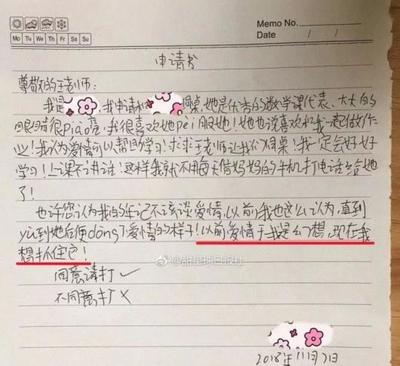 Memo No.
Mo Tu We Th Fr Sa Su
Date / /
申请书
尊敬的王老师:
我是 ,我申请和 同桌,她是优秀的数学课代表、大大的
眼睛很piào亮,我很喜欢她pèi服她!她也说喜欢和我一起做作
业!我认为爱情可以帮助学习!求求王老师让我们同桌!我一定会好好
学习!上课不讲话!这样我就不用每天借妈妈的手机打电话给她
了!
也许您认为我的年纪不该谈爱情,以前我也这么认为,直到
yù到她后便dǒng了爱情的样子!以前,爱情于我是幻想,现在我
想抓住它!
同意请打✓
不同意打×
2018年11月7日